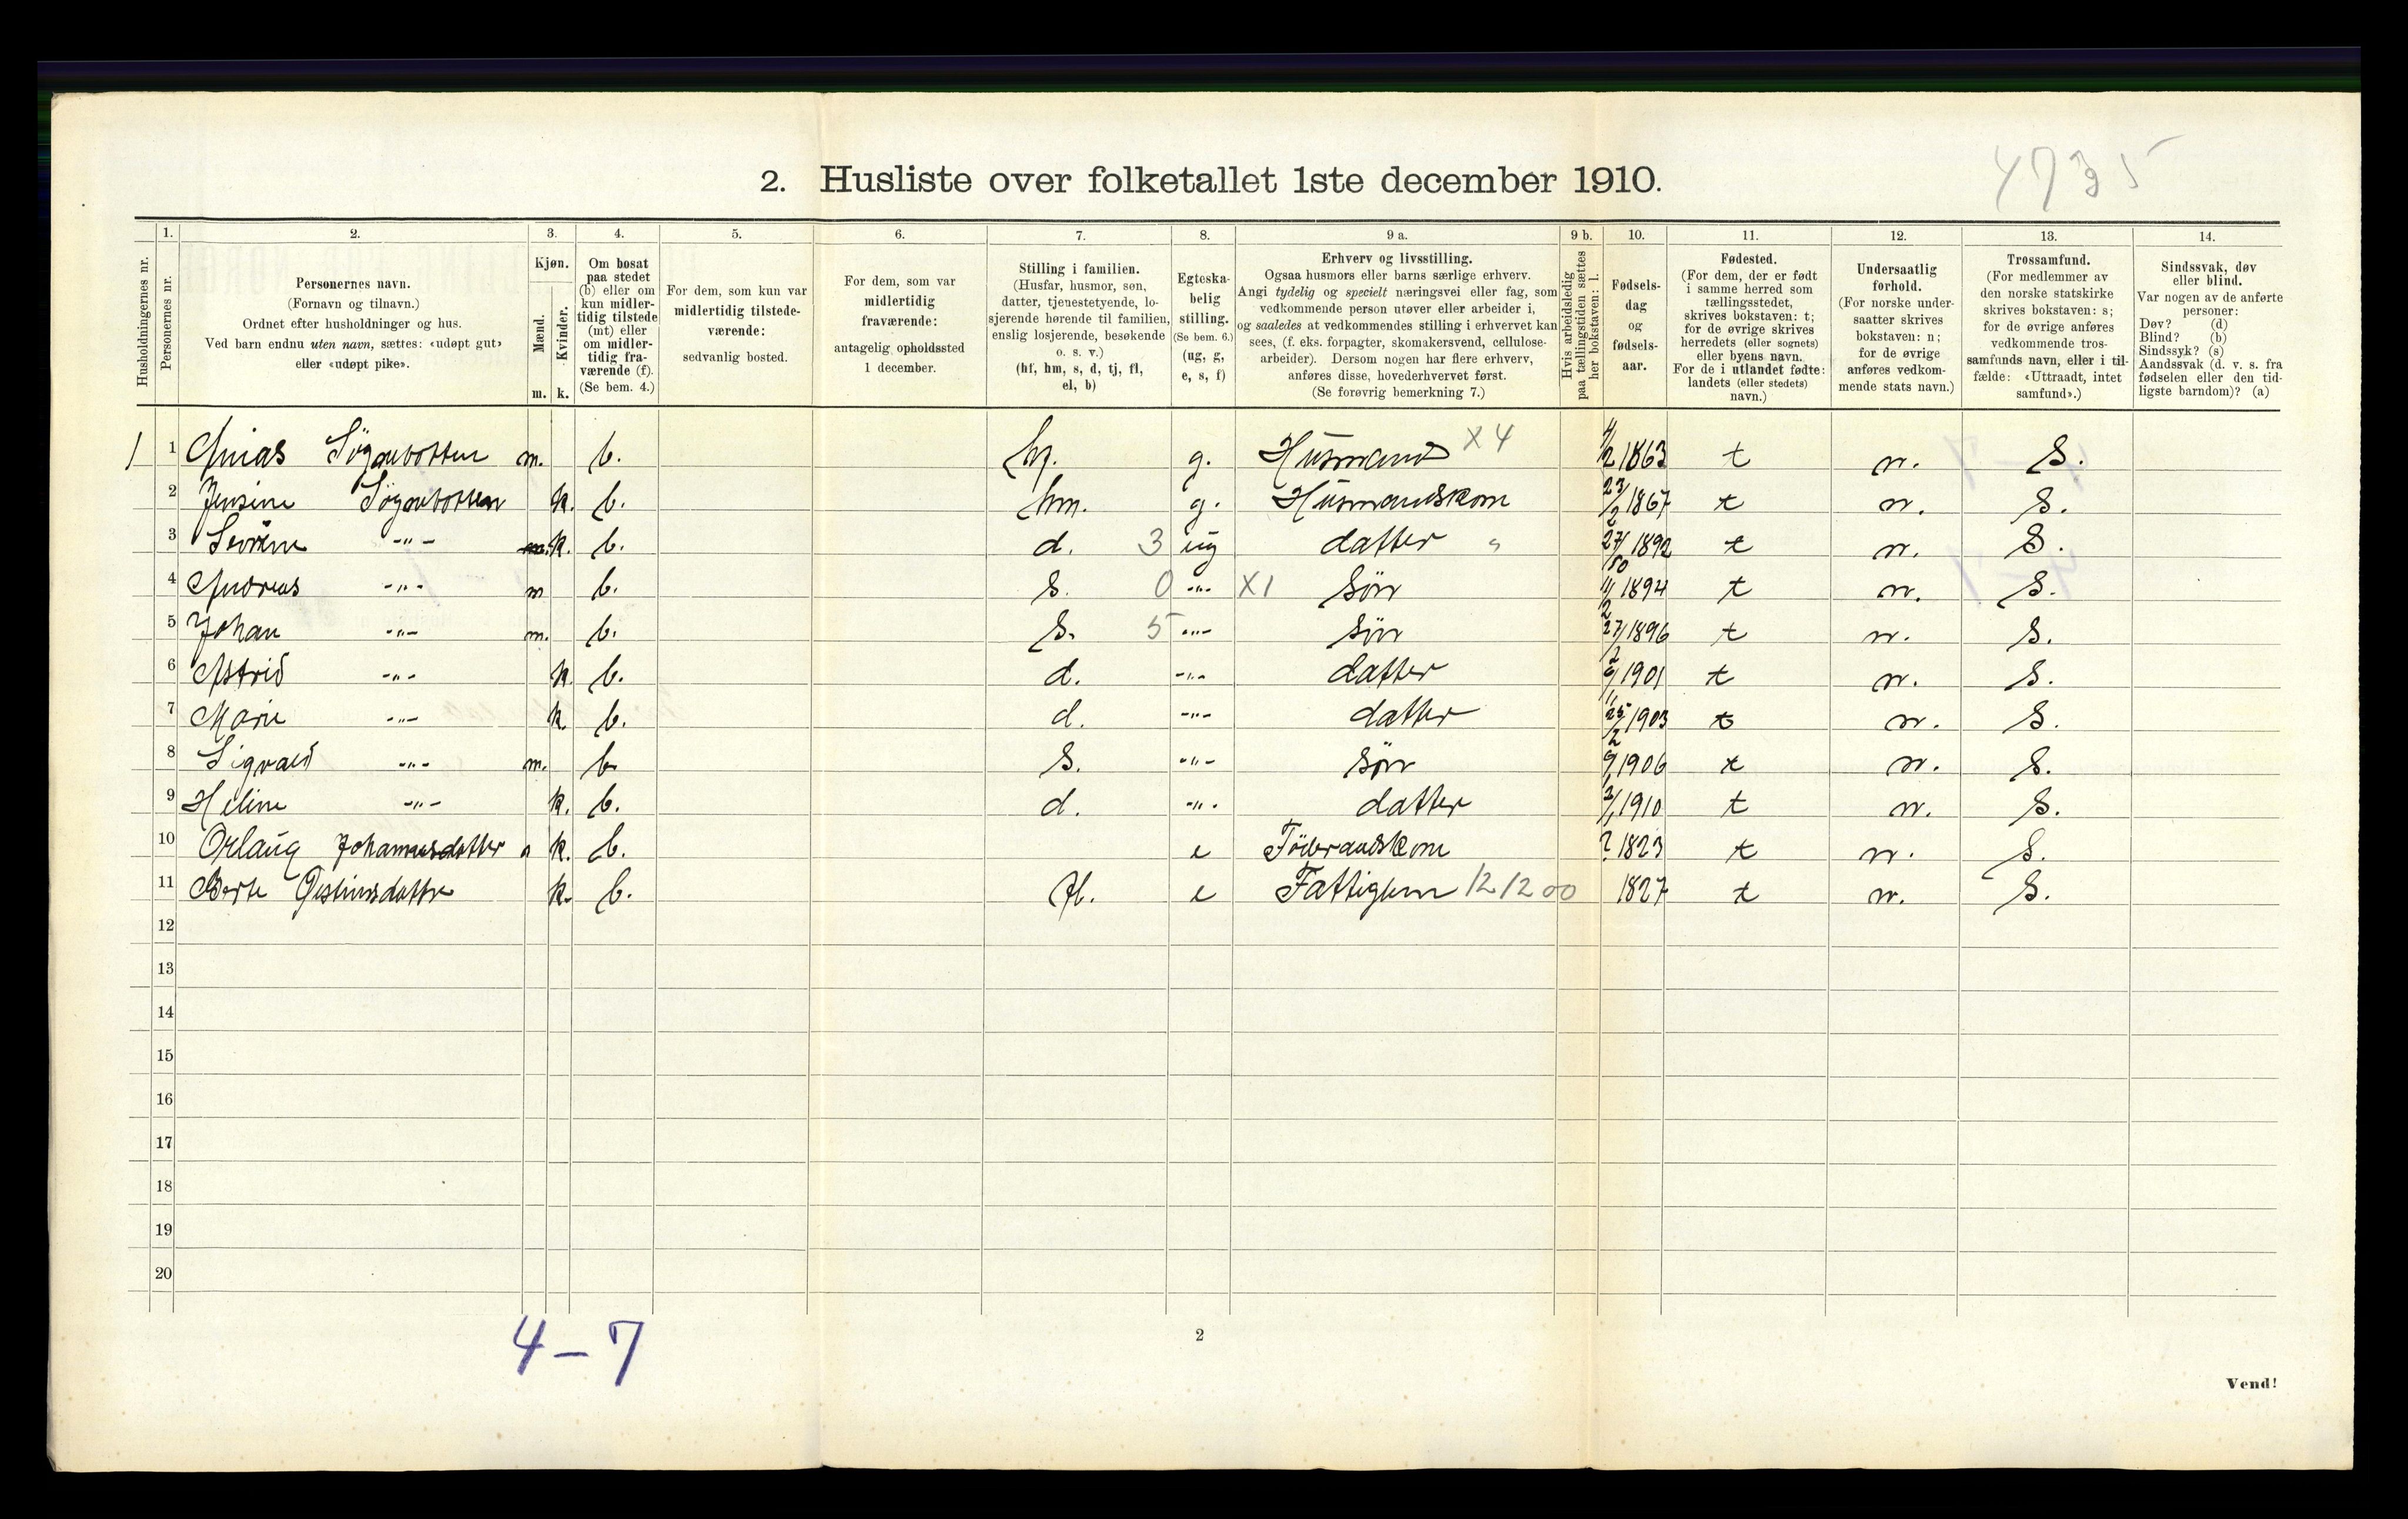 4735
2. Husliste over folketallet 1ste december 1910.
Husholdningernes nr.
1. Personernes nr.
2. Personernes navn. (Fornavn og tilnavn.) Ordnet efter husholdninger og hus. Ved barn endnu uten navn, sættes: «udøpt gut» eller «udøpt pike».
3. Kjøn. Mænd. m. Kvinder. k.
4. Om bosat paa stedet (b) eller om kun midlertidig tilstede (mt) eller om midlertidig fraværende (f). (Se bem. 4.)
5. For dem, som kun var midlertidig tilstedeværende: sedvanlig bosted.
6. For dem, som var midlertidig fraværende: antagelig opholdssted 1 december.
7. Stilling i familien. (Husfar, husmor, søn, datter, tjenestetyende, losjerende hørende til familien, enslig losjerende, besøkende o. s. v.) (hf, hm, s, d, tj, fl, el, b)
8. Egteskabelig stilling. (Se bem. 6.) (ug, g, e, s, f)
9 a. Erhverv og livsstilling. Ogsaa husmors eller barns særlige erhverv. Angi tydelig og specielt næringsvei eller fag, som vedkommende person utøver eller arbeider i, og saaledes at vedkommendes stilling i erhvervet kan sees, (f. eks. forpagter, skomakersvend, cellulosearbeider). Dersom nogen har flere erhverv, anføres disse, hovederhvervet først. (Se forøvrig bemerkning 7.)
9 b. Hvis arbeidsledig paa tællingstiden sættes her bokstaven: l.
10. Fødselsdag og fødselsaar.
11. Fødested. (For dem, der er født i samme herred som tællingsstedet, skrives bokstaven: t; for de øvrige skrives herredets (eller sognets) eller byens navn. For de i utlandet fødte: landets (eller stedets) navn.)
12. Undersaatlig forhold. (For norske undersaatter skrives bokstaven: n; for de øvrige anføres vedkommende stats navn.)
13. Trossamfund. (For medlemmer av den norske statskirke skrives bokstaven: s; for de øvrige anføres vedkommende trossamfunds navn, eller i tilfælde: «Uttraadt, intet samfund».)
14. Sindssvak, døv eller blind. Var nogen av de anførte personer: Døv? (d) Blind? (b) Sindssyk? (s) Aandssvak (d. v. s. fra fødselen eller den tidligste barndom)? (a)
1 1 m. b. hf. g. Husmand X 4 4/2 1863 t n. S.
2 Jensine k. b. hm. g. Husmandskone 23/2 1867 t n. S.
3 -"- k. b. d. 3 ug datter 27/10 1892 t n. S.
4 Andreas -"- m b. S. 0 -"- X1 Sön 11/2 1894 t n. S.
5 Johan -"- m. b. S. 5 -"- Sön 27/2 1896 t n. S.
6 Astrid -"- k. b. d. -"- datter 9/1 1901 t n. S.
7 Marie -"- k. b. d. -"- datter 25/2 1903 t n. S.
8 Sigvald -"- m. b. S. -"- Sön 9/1 1906 t n. S.
9 Heline -"- k. b. d. -"- datter 1910 t n. S.
10 Orlaug Johannesdatter k. b. e Föderaadskone ? 1823 t n. S.
11 Berte k. b. fl. e Fattiglem 12 12 00 1827 t n. S.
12
13
14
15
16
17
18
19
20
4-7
2
Vend!